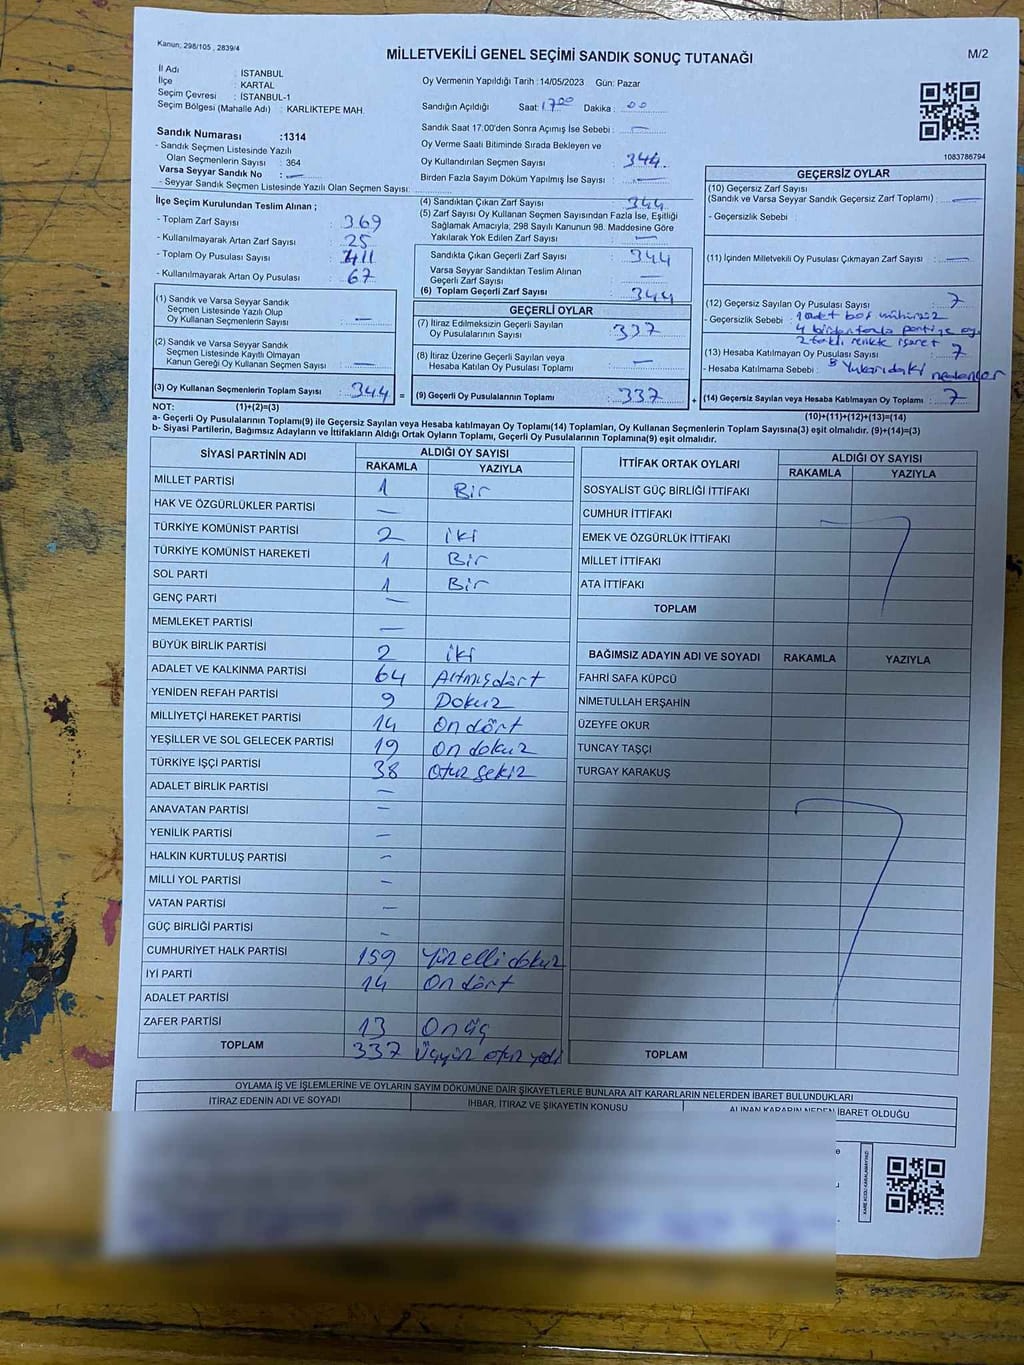 Kanun, 298/105 , 2839/4
MİLLETVEKİLİ GENEL SEÇİMİ SANDIK SONUÇ TUTANAĞI
M/2
İl Adı : İSTANBUL
İlçe : KARTAL
Seçim Çevresi : İSTANBUL-1
Seçim Bölgesi (Mahalle Adı) : KARLIKTEPE MAH.
Sandık Numarası :1314
- Sandık Seçmen Listesinde Yazılı
Olan Seçmenlerin Sayısı : 364
Varsa Seyyar Sandık No : —
- Seyyar Sandık Seçmen Listesinde Yazılı Olan Seçmen Sayısı:
Oy Vermenin Yapıldığı Tarih : 14/05/2023 Gün: Pazar
Sandığın Açıldığı Saat: 17 00 Dakika : 00
Sandık Saat 17.00'den Sonra Açımış İse Sebebi : —
Oy Verme Saati Bitiminde Sırada Bekleyen ve
Oy Kullandırılan Seçmen Sayısı : 344
Birden Fazla Sayım Döküm Yapılmış İse Sayısı : —
1083786794
İlçe Seçim Kurulundan Teslim Alınan ;
- Toplam Zarf Sayısı : 369
- Kullanılmayarak Artan Zarf Sayısı : 25
- Toplam Oy Pusulası Sayısı : 411
- Kullanılmayarak Artan Oy Pusulası : 67
(1) Sandık ve Varsa Seyyar Sandık
Seçmen Listesinde Yazılı Olup
Oy Kullanan Seçmenlerin Sayısı : —
(2) Sandık ve Varsa Seyyar Sandık
Seçmen Listesinde Kayıtlı Olmayan
Kanun Gereği Oy Kullanan Seçmen Sayısı : —
(3) Oy Kullanan Seçmenlerin Toplam Sayısı : 344 =
(4) Sandıktan Çıkan Zarf Sayısı : 344
(5) Zarf Sayısı Oy Kullanan Seçmen Sayısından Fazla İse, Eşitliği
Sağlamak Amacıyla, 298 Sayılı Kanunun 98. Maddesine Göre
Yakılarak Yok Edilen Zarf Sayısı : —
Sandıkta Çıkan Geçerli Zarf Sayısı : 344
Varsa Seyyar Sandıktan Teslim Alınan
Geçerli Zarf Sayısı : —
(6) Toplam Geçerli Zarf Sayısı : 344
GEÇERLİ OYLAR
(7) İtiraz Edilmeksizin Geçerli Sayılan
Oy Pusulalarının Sayısı : 337
(8) İtiraz Üzerine Geçerli Sayılan veya
Hesaba Katılan Oy Pusulası Toplamı : —
(9) Geçerli Oy Pusulalarının Toplamı : 337 +
GEÇERSİZ OYLAR
(10) Geçersiz Zarf Sayısı
(Sandık ve Varsa Seyyar Sandık Geçersiz Zarf Toplamı) : —
- Geçersizlik Sebebi :
(11) İçinden Milletvekili Oy Pusulası Çıkmayan Zarf Sayısı : —
(12) Geçersiz Sayılan Oy Pusulası Sayısı : 7
- Geçersizlik Sebebi : 1 adet boş mühürsüz
4 birden fazla partiye oy
2 farklı renkte işaret
(13) Hesaba Katılmayan Oy Pusulası Sayısı : 7
- Hesaba Katılmama Sebebi : Yukarıdaki nedenler
(14) Geçersiz Sayılan veya Hesaba Katılmayan Oy Toplamı : 7
NOT: (1)+(2)=(3)
(10)+(11)+(12)+(13)=(14)
a- Geçerli Oy Pusulalarının Toplamı(9) ile Geçersiz Sayılan veya Hesaba katılmayan Oy Toplamı(14) Toplamları, Oy Kullanan Seçmenlerin Toplam Sayısına(3) eşit olmalıdır. (9)+(14)=(3)
b- Siyasi Partilerin, Bağımsız Adayların ve İttifakların Aldığı Ortak Oyların Toplamı, Geçerli Oy Pusulalarının Toplamına(9) eşit olmalıdır.
SİYASİ PARTİNİN ADI ALDIĞI OY SAYISI
RAKAMLA YAZIYLA
MİLLET PARTİSİ 1 Bir
HAK VE ÖZGÜRLÜKLER PARTİSİ —
TÜRKİYE KOMÜNİST PARTİSİ 2 iki
TÜRKİYE KOMÜNİST HAREKETİ 1 Bir
SOL PARTİ 1 Bir
GENÇ PARTİ —
MEMLEKET PARTİSİ —
BÜYÜK BİRLİK PARTİSİ 2 iki
ADALET VE KALKINMA PARTİSİ 64 Altmışdört
YENİDEN REFAH PARTİSİ 9 Dokuz
MİLLİYETÇİ HAREKET PARTİSİ 14 On dört
YEŞİLLER VE SOL GELECEK PARTİSİ 19 On dokuz
TÜRKİYE İŞÇİ PARTİSİ 38 Otuz sekiz
ADALET BİRLİK PARTİSİ —
ANAVATAN PARTİSİ —
YENİLİK PARTİSİ —
HALKIN KURTULUŞ PARTİSİ —
MİLLİ YOL PARTİSİ —
VATAN PARTİSİ —
GÜÇ BİRLİĞİ PARTİSİ -
CUMHURİYET HALK PARTİSİ 159 Yüz elli dokuz
İYİ PARTİ 14 On dört
ADALET PARTİSİ
ZAFER PARTİSİ 13 On üç
TOPLAM 337 Üçyüz otuz yedi
İTTİFAK ORTAK OYLARI ALDIĞI OY SAYISI
RAKAMLA YAZIYLA
SOSYALİST GÜÇ BİRLİĞİ İTTİFAKI
CUMHUR İTTİFAKI
EMEK VE ÖZGÜRLÜK İTTİFAKI
MİLLET İTTİFAKI
ATA İTTİFAKI
TOPLAM
BAĞIMSIZ ADAYIN ADI VE SOYADI RAKAMLA YAZIYLA
FAHRİ SAFA KÜPCÜ
NİMETULLAH ERŞAHİN
ÜZEYFE OKUR
TUNCAY TAŞÇI
TURGAY KARAKUŞ
TOPLAM
OYLAMA İŞ VE İŞLEMLERİNE VE OYLARIN SAYIM DÖKÜMÜNE DAİR ŞİKAYETLERLE BUNLARA AİT KARARLARIN NELERDEN İBARET BULUNDUKLARI
İTİRAZ EDENİN ADI VE SOYADI İHBAR, İTİRAZ VE ŞİKAYETİN KONUSU ALINAN KARARIN NEDEN İBARET OLDUĞU